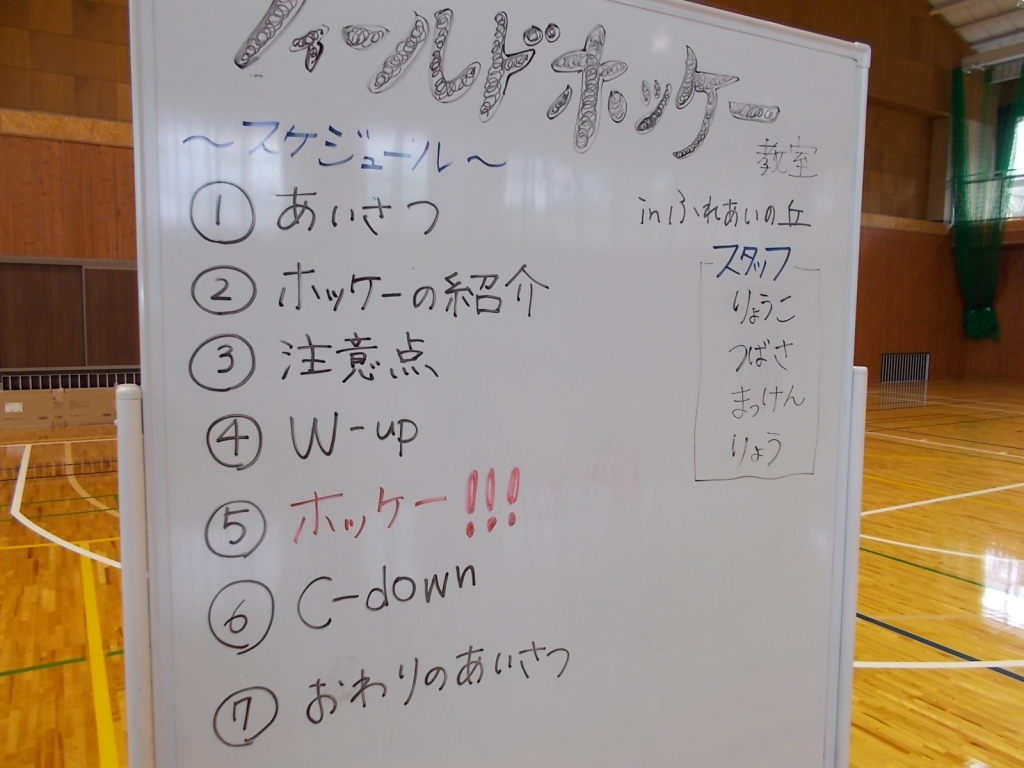 フィールドホッケー
教室
inふれあいの丘
～スケジュール～
① あいさつ
② ホッケーの紹介
③ 注意点
④ W-up
⑤ ホッケー!!!
⑥ C-down
⑦ おわりのあいさつ
スタッフ
りょうこ
つばさ
まっけん
りょう